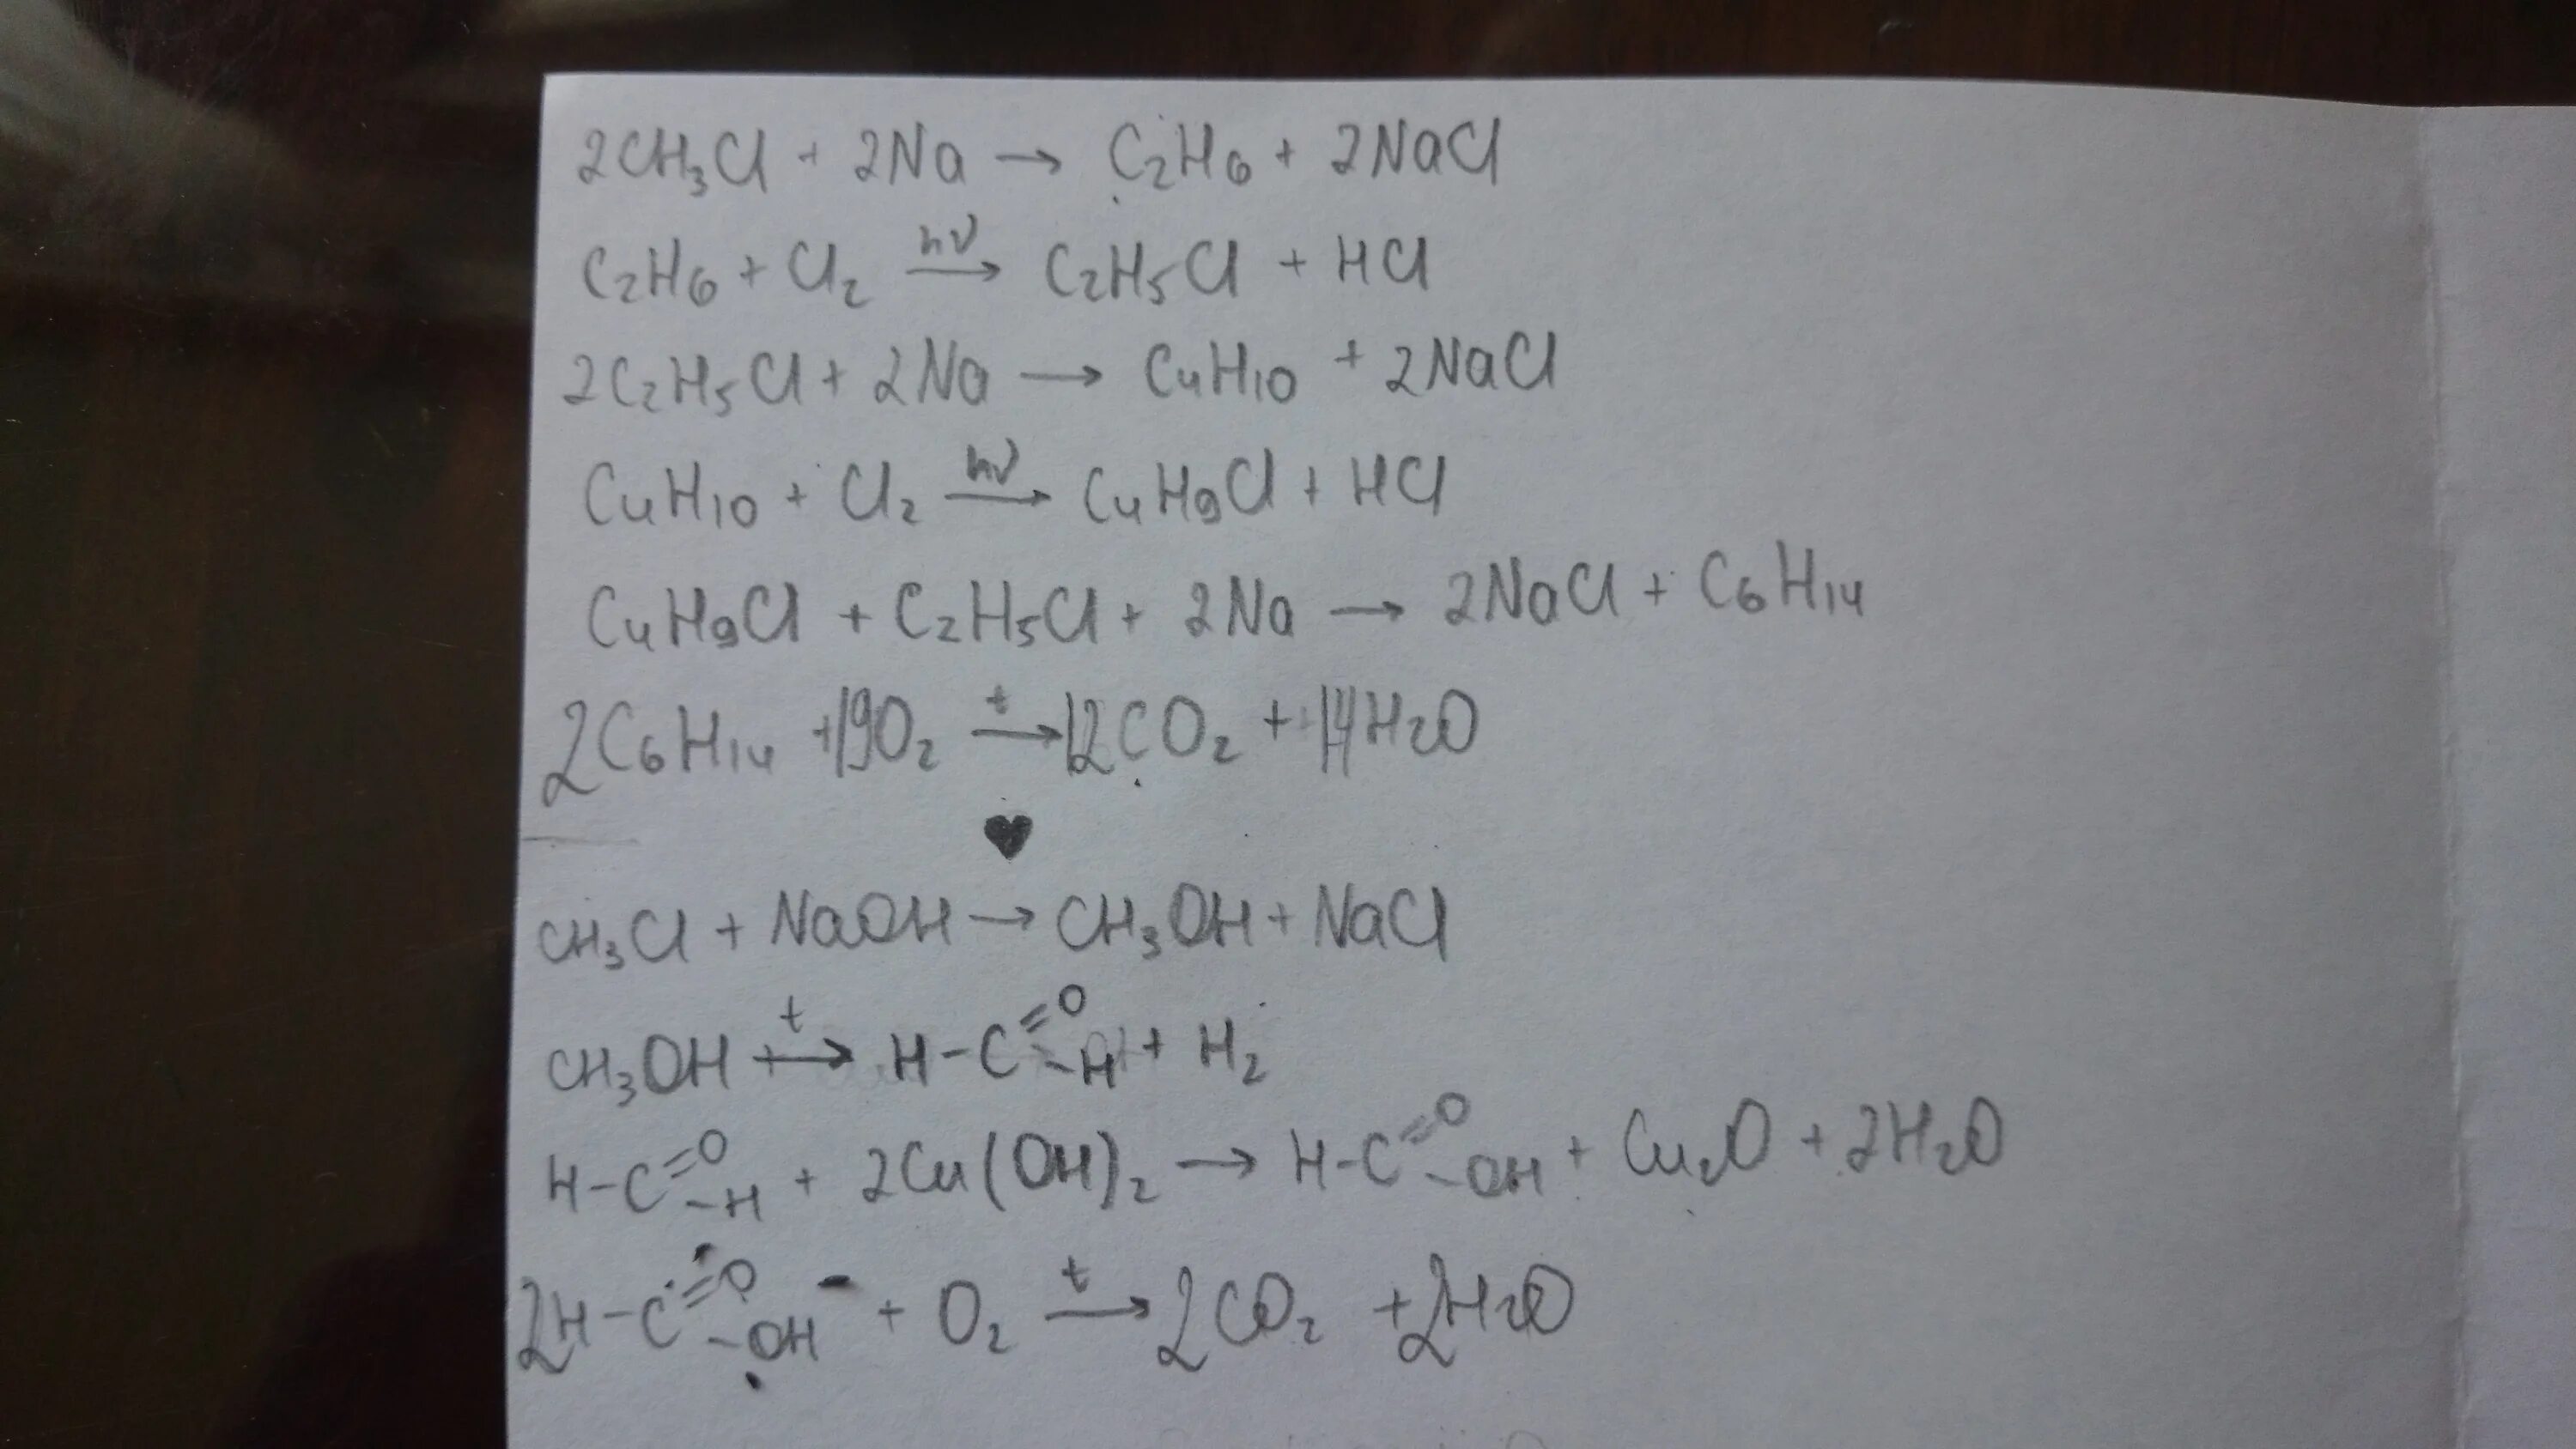 2CH₃Cl + 2Na → C₂H₆ + 2NaCl
C₂H₆ + Cl₂ →(hν) C₂H₅Cl + HCl
2C₂H₅Cl + 2Na → C₄H₁₀ + 2NaCl
C₄H₁₀ + Cl₂ →(hν) C₄H₉Cl + HCl
C₄H₉Cl + C₂H₅Cl + 2Na → 2NaCl + C₆H₁₄
2C₆H₁₄ + 19O₂ →(t) 12CO₂ + 14H₂O
♥
CH₃Cl + NaOH → CH₃OH + NaCl
CH₃OH →(t) H-C(=O)-H + H₂
H-C(=O)-H + 2Cu(OH)₂ → H-C(=O)-OH + Cu₂O + 2H₂O
2H-C(=O)-OH + O₂ →(t) 2CO₂ + 2H₂O